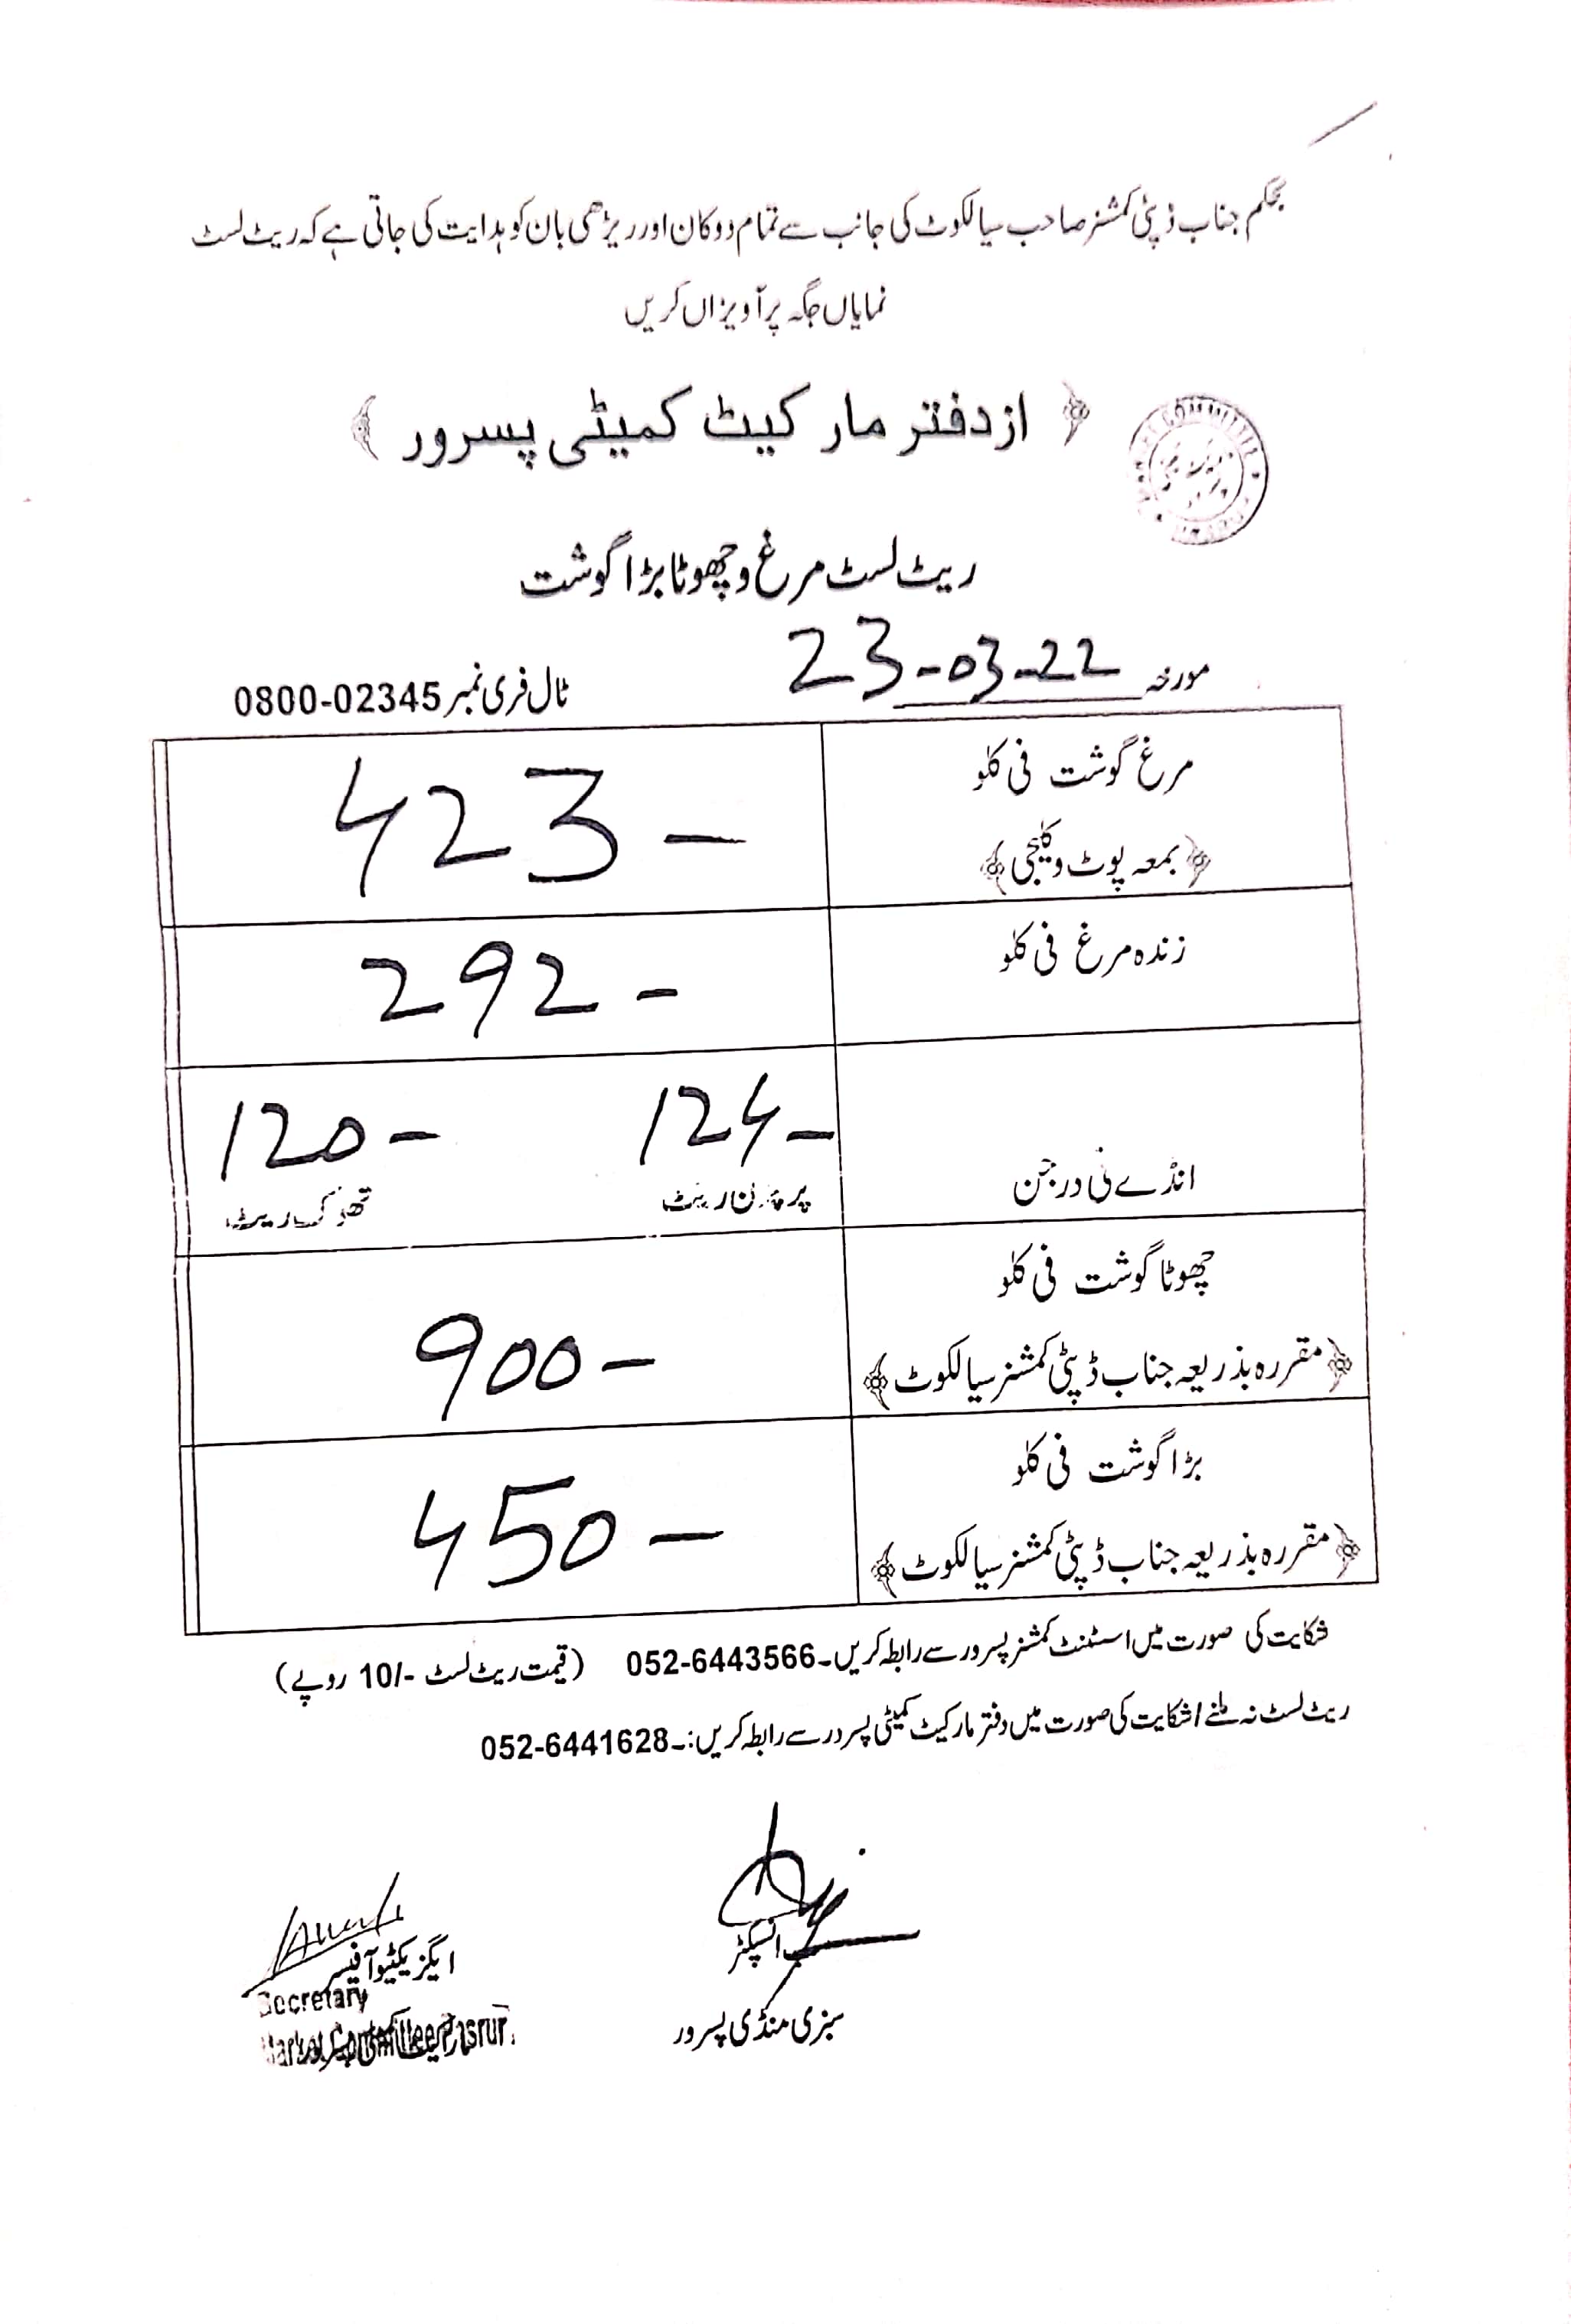 بحکم جناب ڈپٹی کمشنر صاحب سیالکوٹ کی جانب سے تمام دوکان اور ریڑھی بان کو ہدایت کی جاتی ہے کہ ریٹ لسٹ
نمایاں جگہ پر آویزاں کریں
﴿ از دفتر مارکیٹ کمیٹی پسرور ﴾
ریٹ لسٹ مرغ و چھوٹا بڑا گوشت
مورخہ 23-03-22
ٹال فری نمبر 0800-02345
مرغ گوشت فی کلو
﴿بمعہ پوٹ و کلیجی﴾
423 -
زندہ مرغ فی کلو
292 -
انڈے فی درجن
124 -
پرچون ریٹ
120 -
تھوک ریٹ
چھوٹا گوشت فی کلو
﴿مقررہ بذریعہ جناب ڈپٹی کمشنر سیالکوٹ﴾
900 -
بڑا گوشت فی کلو
﴿مقررہ بذریعہ جناب ڈپٹی کمشنر سیالکوٹ﴾
450 -
شکایت کی صورت میں اسسٹنٹ کمشنر پسرور سے رابطہ کریں۔ 052-6443566 (قیمت ریٹ لسٹ -/10 روپے)
ریٹ لسٹ نہ ملنے / شکایت کی صورت میں دفتر مارکیٹ کمیٹی پسرور سے رابطہ کریں:۔ 052-6441628
سب انسپکٹر
سبزی منڈی پسرور
ایگزیکٹیو آفیسر
Secretary
Market Committee Pasrur.